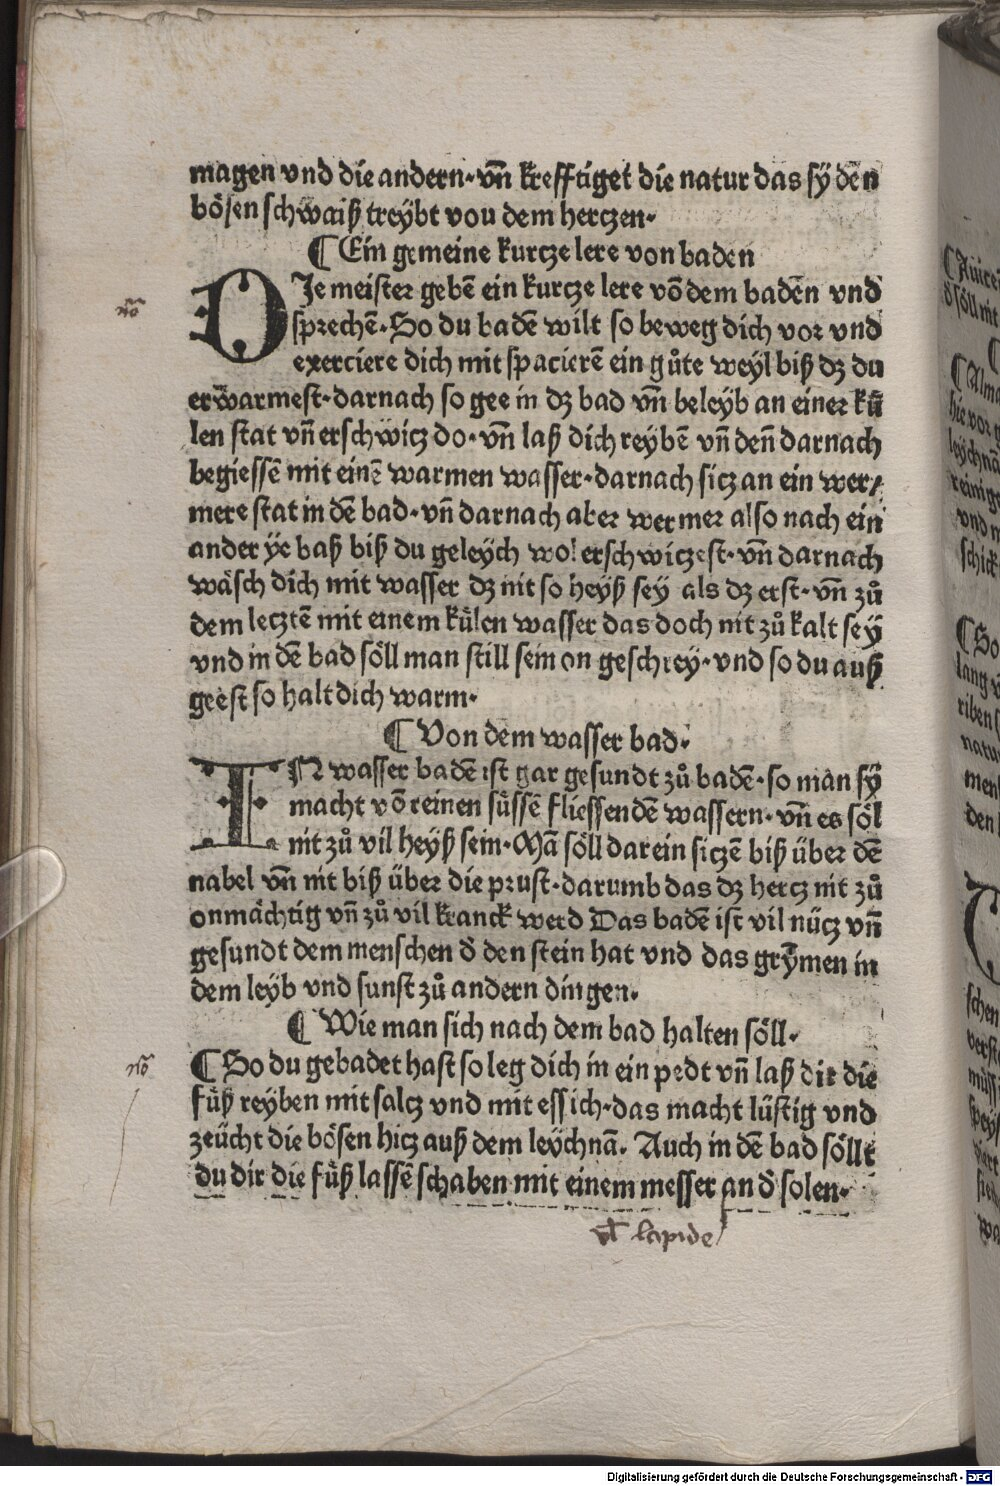 magen vnd die andern· vn̄ krefftiget die natur das sÿ den
boͤsen schwaiß treÿbt vou dem hertzen·
¶ Ein gemeine kurtze lere von baden
DJe meister gebē ein kurtze lere vō dem baden vnd
sprechē· So du badē wilt so beweg dich vor vnd
exerciere dich mit spacierē ein guͦte weyl biß dz du
erwarmest· darnach so gee in dz bad vn̄ beleÿb an einer kuͤ
len stat vn̄ erschwicz do· vn̄ laß dich reybē vn̄ den̄ darnach
begiessē mit einē warmen wasser· darnach sicz an ein wer/
mere stat in dē bad· vn̄ darnach aber wermer also nach ein
ander ÿe baß biß du geleÿch wol erschwiczest· vn̄ darnach
waͤsch dich mit wasser dz nit so heyß sey als dz erst· vn̄ zuͦ
dem lecztē mit einem kuͤlen wasser das doch nit zuͦ kalt seÿ
vnd in dē bad soͤll man still sein on geschrey· vnd so du auß
geest so halt dich warm·
¶ Von dem wasser bad·
IN wasser badē ist gar gesundt zuͦ badē· so man sÿ
macht vō reinen suͤssē fliessendē wassern· vn̄ es soͤl
nit zuͦ vil heyß sein· Mā soͤll darein siczē biß uͤber dē
nabel vn̄ nit biß uͤber die prust· darumb das dz hercz nit zuͦ
onmaͤchtig vn̄ zuͦ vil kranck werd Das badē ist vil nuͤcz vn̄
gesundt dem menschen ð den stein hat vnd das grÿmen in
dem leÿb vnd sunst zuͦ andern dingen·
¶ Wie man sich nach dem bad halten soͤll·
¶ So du gebadet hast so leg dich in ein pedt vn̄ laß dir die
fuͤß reyben mit salcz vnd mit essich· das macht luͤstig vnd
zeuͤcht die boͤsen hicz auß dem leÿchnā· Auch in dē bad soͤllt
du dir die fuͤß lassē schaben mit einem messer an ð solen·
vł lapide
Digitalisierung gefördert durch die Deutsche Forschungsgemeinschaft - DFG